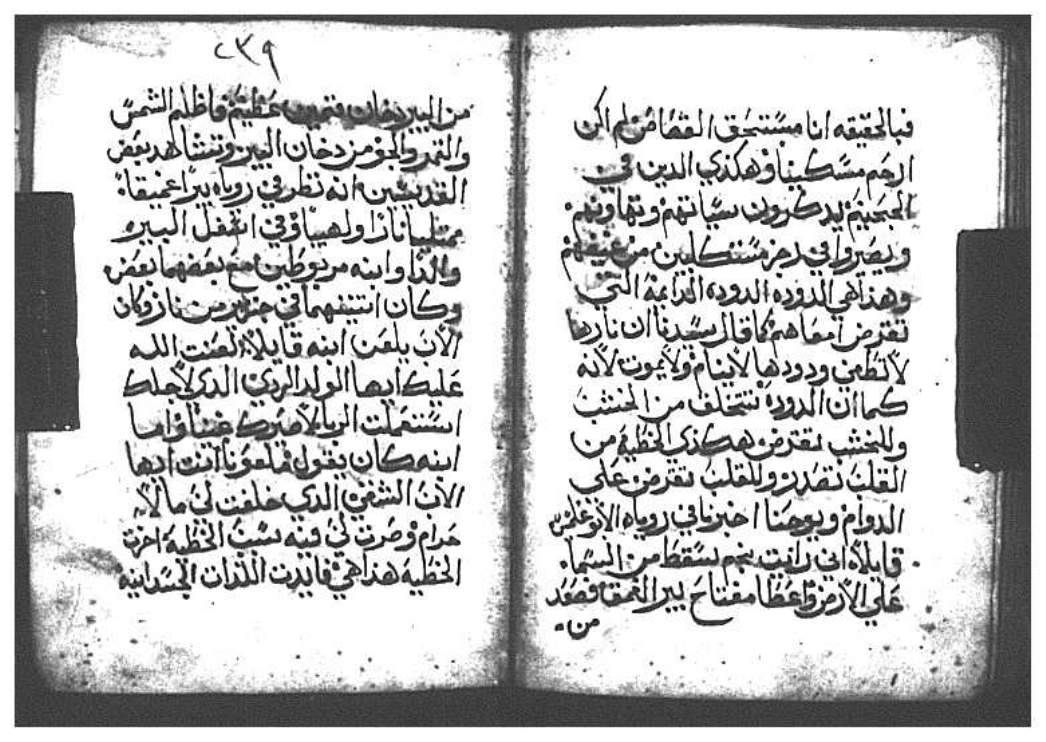 فبالحقيقه انا مستحق القصاص لم اكن
ارحم مسكينا وهكذي الدين في
الجحيم يدكرون سياتهم وتهاونهم
ويصيروا في رجز مستكلين من غيضهم
وهذا هي الدوده الدوده الدايمة التي
تقرض امعاهم كما قال سيدنا ان نارها
لا تطفي ودودها لا ينام ولا يموت لانه
كما ان الدودة تتخلف من الخشب
وللخشب تقرض هكذي الخطية من
القلب تصدر وللقلب تقرض علي
الدوام ويوحنا اخبرنا في روياه
قايلا اني رايت نجم يسقط من السما
علي الارض واعطا مفتاح بير العمق فصعد
من
٢٣٩
من البير دخان عظيم فاظلم الشمس
والقمر والجو من دخان البير وتشاهد بعض
القديسين انه نظر في روياه بيرا عميقا
ممتليا نارا ولهيبا وفي اسفل البير
والدا وابنه مربوطين مع بعضهما بعض
وكان اثنينهما في من نار وكان
الاب يلعن ابنه قايلا لعنت الله
عليك ايها الولد الردي الدي لاجلك
استعملت الربا لاصيرك غنيا واما
ابنه كان يقول ملعونا انت ايها
الاب الشقي الدي خلفت لي مالا
حرام وصرت لي فيه سبب الخطية اخرت
الخطية هذا هي فايدت اللذات الجسدانية